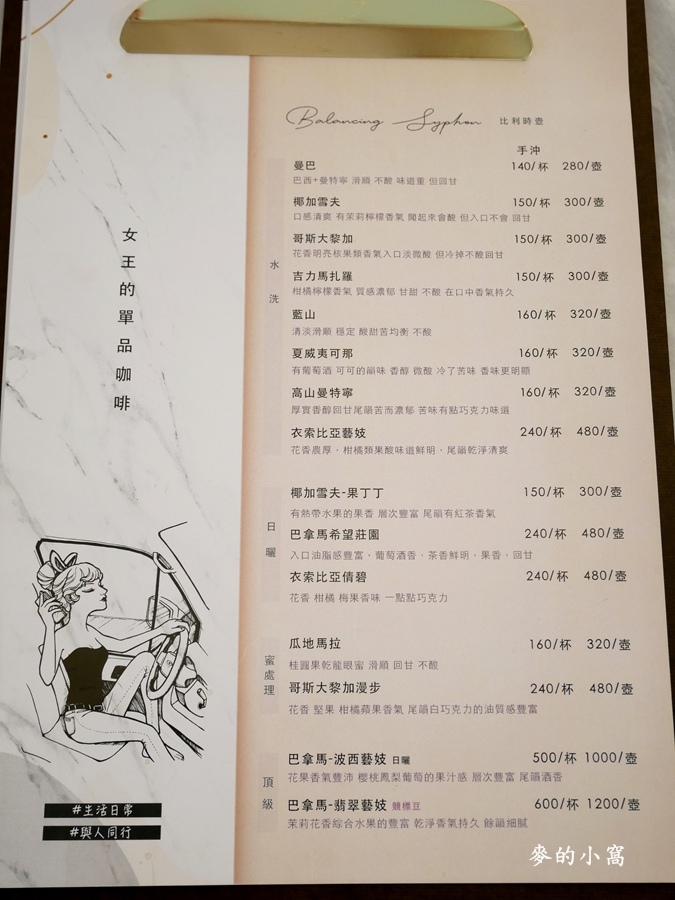 Balancing Syphon 比利時壺
手沖
女王的單品咖啡
水洗
曼巴 140/杯 280/壺
巴西+曼特寧 滑順 不酸 味道重 但回甘
椰加雪夫 150/杯 300/壺
口感清爽 有茉莉檸檬香氣 聞起來會酸 但入口不會 回甘
哥斯大黎加 150/杯 300/壺
花香明亮核果類香氣入口淡微酸 但冷掉不酸回甘
吉力馬扎羅 150/杯 300/壺
柑橘檸檬香氣 質感濃郁 甘甜 不酸 在口中香氣持久
藍山 160/杯 320/壺
清淡滑順 穩定 酸甜苦均衡 不酸
夏威夷可那 160/杯 320/壺
有葡萄酒 可可的韻味 香醇 微酸 冷了苦味 香味更明顯
高山曼特寧 160/杯 320/壺
厚實香醇回甘尾韻苦而濃郁 苦味有點巧克力味道
衣索比亞藝妓 240/杯 480/壺
花香農厚、柑橘類果酸味道鮮明、尾韻乾淨清爽
日曬
椰加雪夫-果丁丁 150/杯 300/壺
有熱帶水果的果香 層次豐富 尾韻有紅茶香氣
巴拿馬希望莊園 240/杯 480/壺
入口油脂感豐富、葡萄酒香、茶香鮮明、果香、回甘
衣索比亞倩碧 240/杯 480/壺
花香 柑橘 梅果香味 一點點巧克力
蜜處理
瓜地馬拉 160/杯 320/壺
桂圓果乾龍眼蜜 滑順 回甘 不酸
哥斯大黎加漫步 240/杯 480/壺
花香 堅果 柑橘蘋果香氣 尾韻白巧克力的油質感豐富
頂級
巴拿馬-波西藝妓 日曬 500/杯 1000/壺
花果香氣豐沛 櫻桃鳳梨葡萄的果汁感 層次豐富 尾韻酒香
巴拿馬-翡翠藝妓 競標豆 600/杯 1200/壺
茉莉花香綜合水果的豐富 乾淨香氣持久 餘韻細膩
#生活日常
#與人同行
麥的小窩